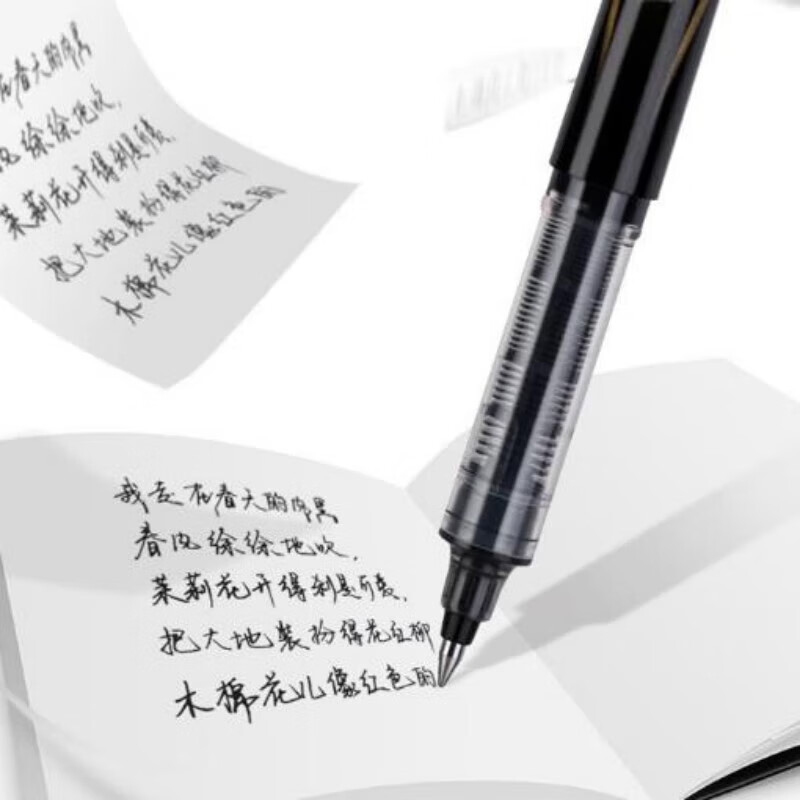 在春天的
徐徐地吹，
茉莉花开得
把大地裝扮得花红柳
木棉花儿像红色的
我走在春天的
春风徐徐地吹，
茉莉花开得可爱，
把大地裝扮得花红柳
木棉花儿像红色的